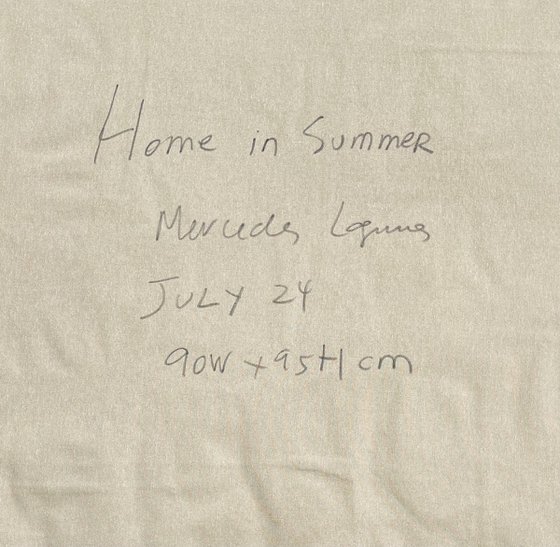 Home in Summer
Mercedes Laguna
JULY 24
90W x 95H cm